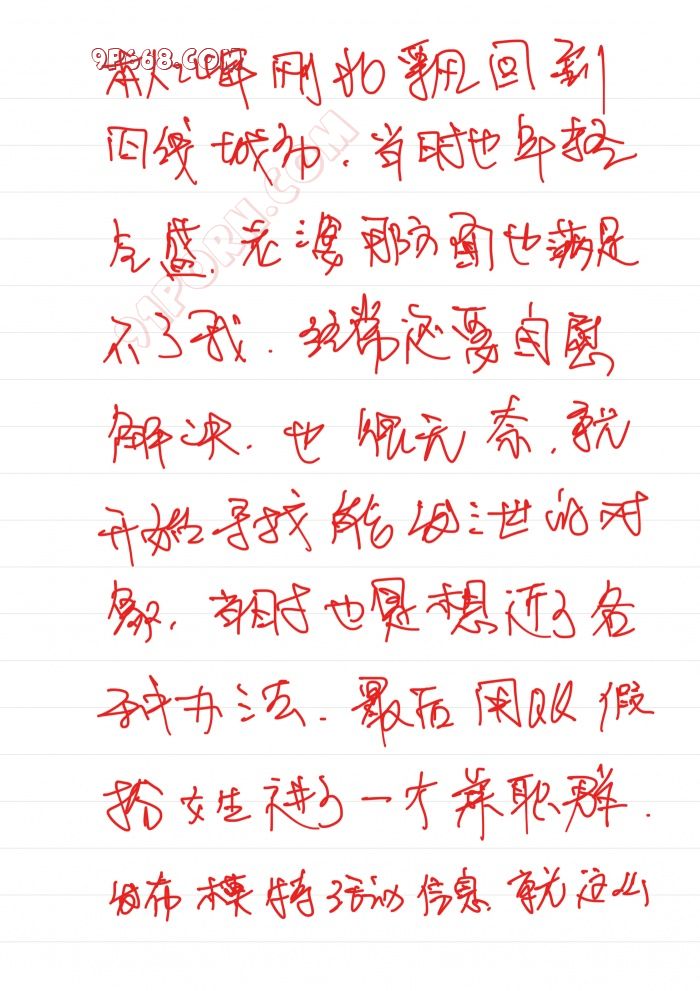 9P568.COM
91PORN.COM
刚北漂回到
四线城市.当时也年轻
气盛.老婆那方面也满足
不了我.经常还要自慰
解决.也很无奈.就
开始寻找能发泄的对
象.当时也是想近了各
种办法.最后用QQ假
扮女生进了一个兼职群.
发布模特活动信息.就这么